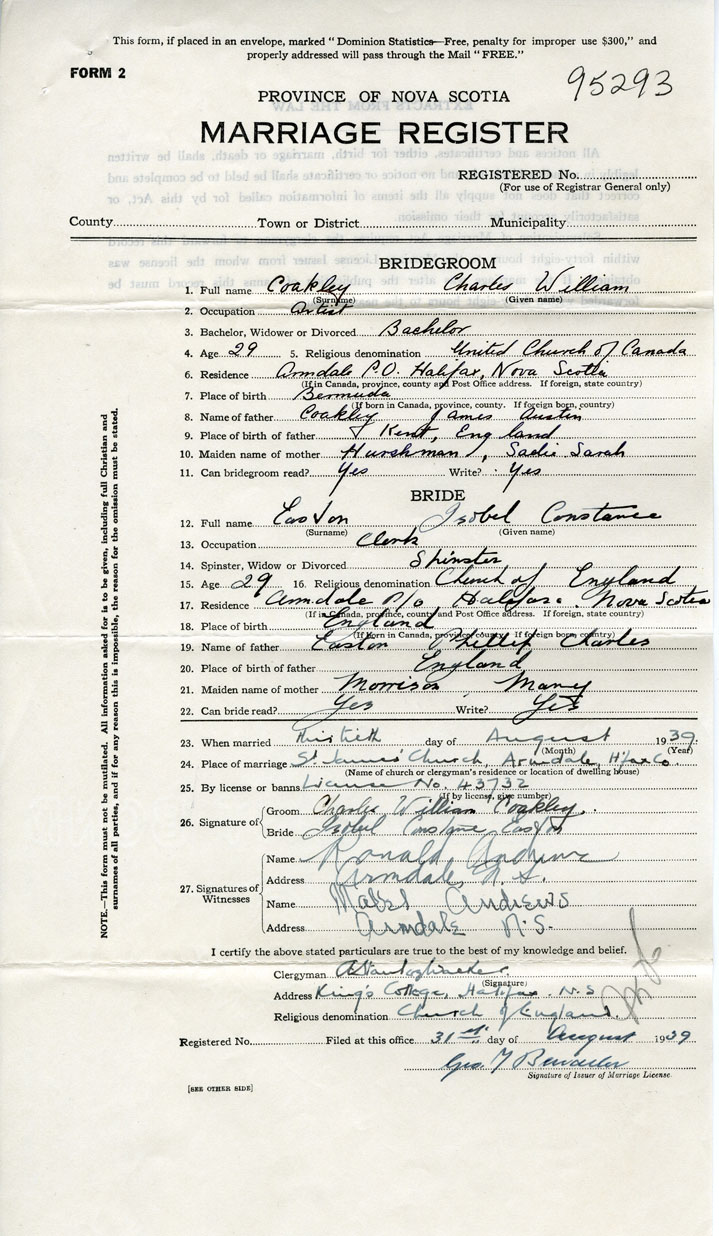 This form, if placed in an envelope, marked "Dominion Statistics—Free, penalty for improper use $300," and
properly addressed will pass through the Mail "FREE."
FORM 2
95293
PROVINCE OF NOVA SCOTIA
MARRIAGE REGISTER
REGISTERED No.
(For use of Registrar General only)
County Town or District Municipality
BRIDEGROOM
1. Full name Coakley Charles William
(Surname) (Given name)
2. Occupation Artist
3. Bachelor, Widower or Divorced Bachelor
4. Age 29 5. Religious denomination United Church of Canada
6. Residence Armdale P.O. Halifax, Nova Scotia
(If in Canada, province, county and Post Office address. If foreign, state country)
7. Place of birth Bermuda
(If born in Canada, province, county. If foreign born, country)
8. Name of father Coakley James Austin
9. Place of birth of father Kent, England
10. Maiden name of mother Hurshman, Sadie Sarah
11. Can bridegroom read? Yes Write? Yes
BRIDE
12. Full name Easton Isobel Constance
(Surname) (Given name)
13. Occupation Clerk
14. Spinster, Widow or Divorced Spinster
15. Age 29 16. Religious denomination Church of England
17. Residence Armdale P/o Halifax. Nova Scotia
(If in Canada, province, county and Post Office address. If foreign, state country)
18. Place of birth England
(If born in Canada, province, county. If foreign born, country)
19. Name of father Easton Phillip Charles
20. Place of birth of father England
21. Maiden name of mother Morrison Mary
22. Can bride read? Yes Write? Yes
23. When married thirtieth day of August 1939
(Month) (Year)
24. Place of marriage St James' Church, Armdale, H'fax Co.
(Name of church or clergyman's residence or location of dwelling house)
25. By license or banns License No. 43732
(If by license, give number)
26. Signature of
Groom Charles William Coakley.
Bride Isobel Constance Easton
27. Signatures of Witnesses
Name Ronald Andrews
Address Armdale, N.S.
Name Mabel Andrews
Address Armdale N.S.
I certify the above stated particulars are true to the best of my knowledge and belief.
Clergyman
(Signature)
Address King's College, Halifax. N.S
Religious denomination Church of England.
Registered No. Filed at this office 31st day of August 1939
Geo.
Signature of Issuer of Marriage License
[SEE OTHER SIDE]
NOTE.—This form must not be mutilated. All information asked for is to be given, including full Christian and
surnames of all parties, and if for any reason this is impossible, the reason for the omission must be stated.